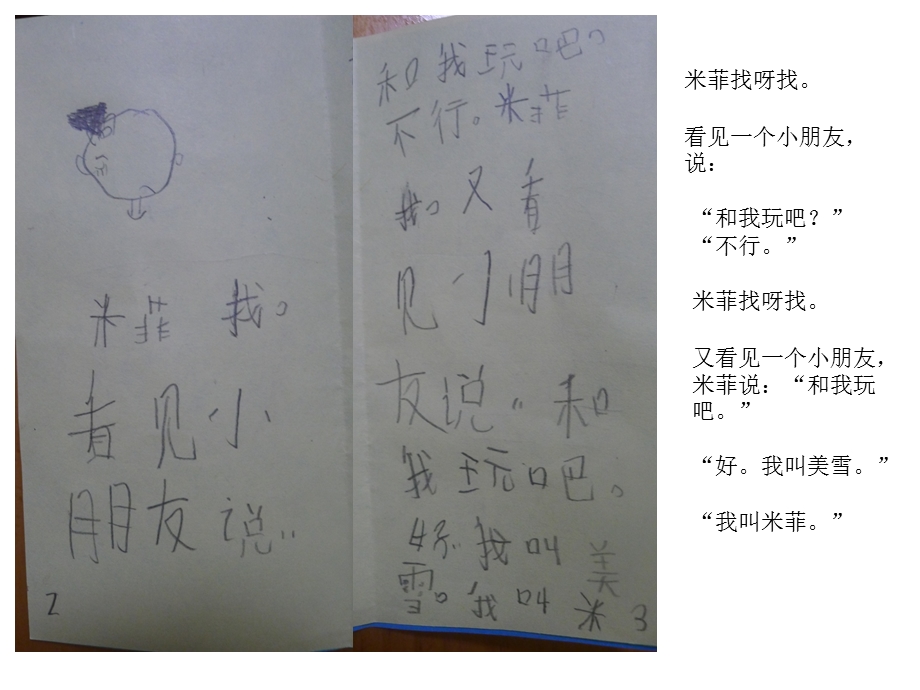 米菲 找。
看见小
朋友说：
2
和我玩吧。
不行。米菲
找。又看
见小朋
友说：和
我玩吧。
好。我叫美
雪。我叫米
3
米菲找呀找。
看见一个小朋友，
说：
“和我玩吧？”
“不行。”
米菲找呀找。
又看见一个小朋友，
米菲说：“和我玩
吧。”
“好。我叫美雪。”
“我叫米菲。”